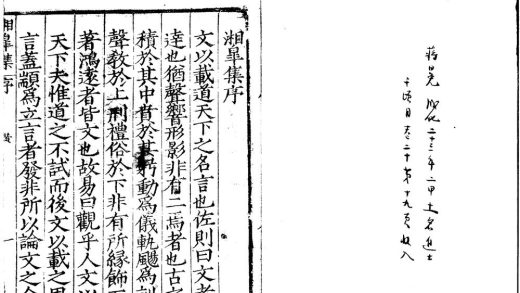 蒋冕 成化二十三年二甲
千頃目 卷二十 第十九頁 收入
湘皋集序
文以載道天下之名言也佐則曰文者
達也猶聲響形影非有二焉者也古
積於其中賁於其躬動為儀軌颺為
聲教於上刑禮俗於下非有所緣飾
著鴻遠者皆文也故易曰觀乎人文以
天下夫惟道之不試而後文以載之
言蓋顓為立言者發非所以論文之
湘皋集序 一